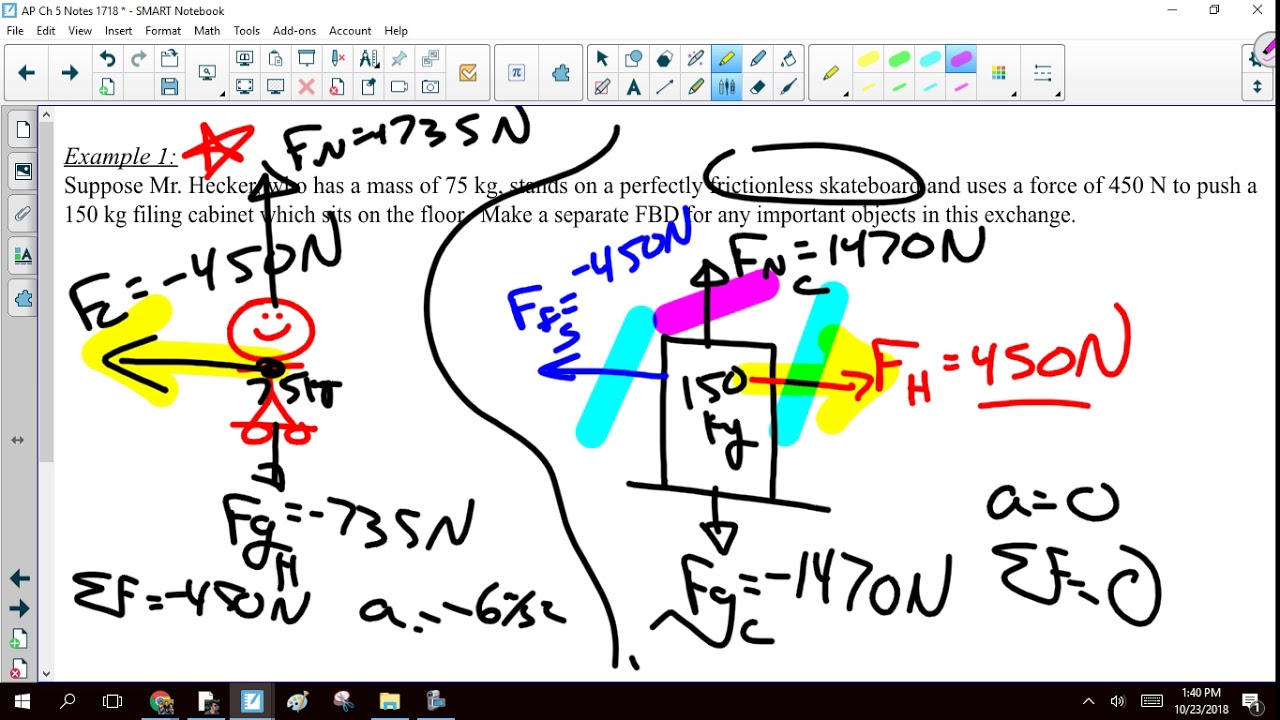 AP Ch 5 Notes 1718 * - SMART Notebook
File Edit View Insert Format Math Tools Add-ons Account Help
Example 1:
FN=+735N
Suppose Mr. Hecker, who has a mass of 75 kg, stands on a perfectly frictionless skateboard and uses a force of 450 N to push a
150 kg filing cabinet which sits on the floor. Make a separate FBD for any important objects in this exchange.
Fc=-450N
75kg
FgH=-735N
ΣF=-450N a=-6m/s2
Ffs=-450N
FNc=1470N
150
kg
FH=450N
Fgc=-1470N
a=0
ΣF=0
1:40 PM
10/23/2018
1